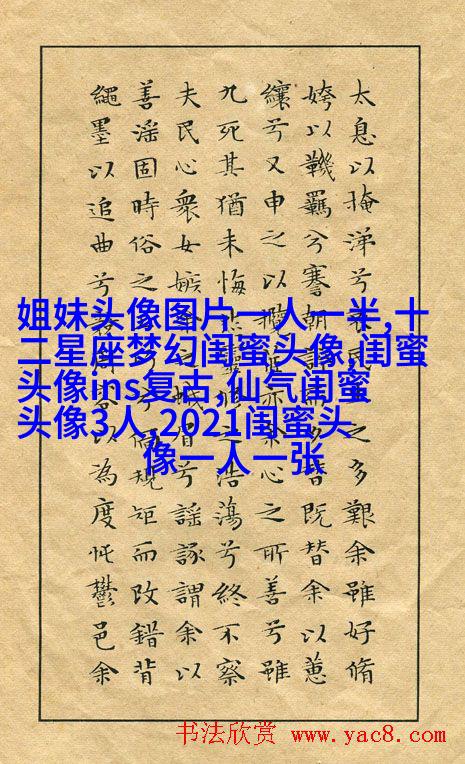 太息以掩涕兮哀民之多艱余雖好脩
姱以鞿羈兮謇朝誶而夕替既替余以蕙
纕兮又申之以攬亦余心之所善兮雖
九死其猶未悔靈之浩蕩兮終不察
夫民心衆女嫉余眉兮謠諑謂余以
善淫固時俗之兮規矩而改錯背
繩墨以追曲兮周容以為度忳鬱邑余
姐妹头像图片一人一半,十
二星座梦幻闺蜜头像,闺蜜
头像ins复古,仙气闺蜜
头像3人,2021闺蜜头
像一人一张
书法欣赏 www.yac8.com